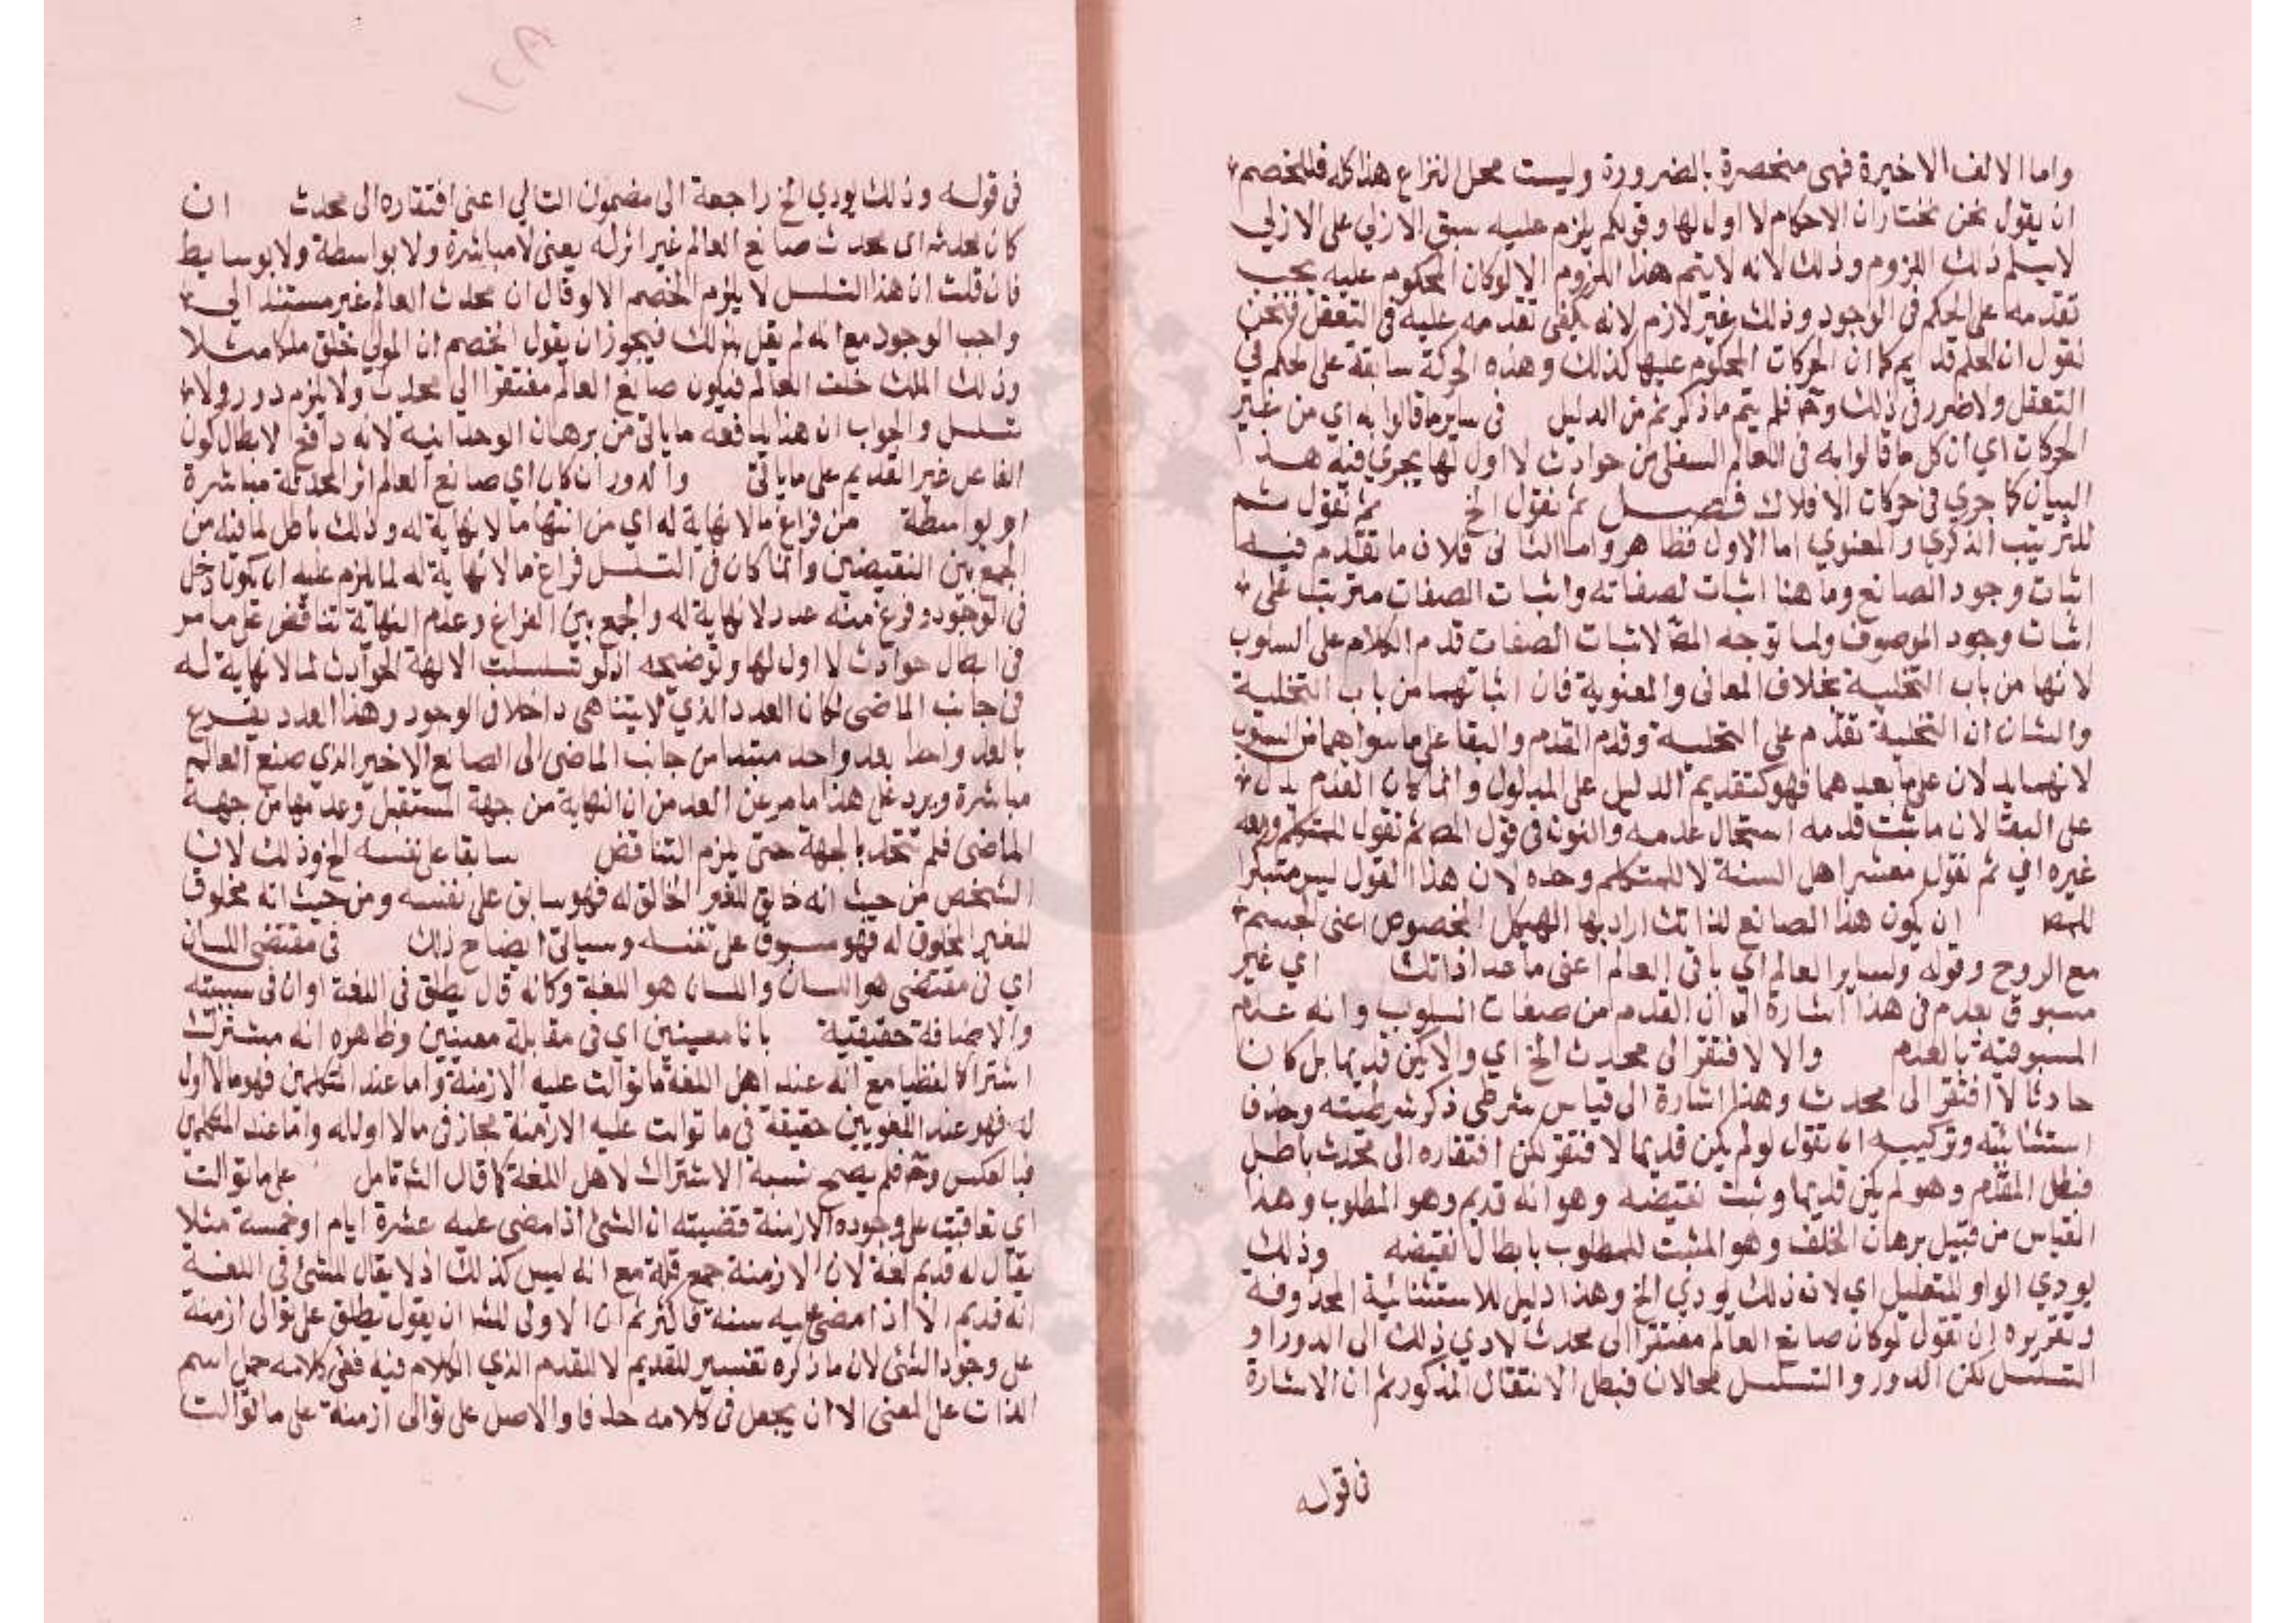 واما الالف الاخيرة فهى منحصرة بالضرورة وليست محل النزاع هذا كله فللخصم
ان يقول نحن نختار ان الاحكام لا اول لها وقولكم يلزم عليه سبق الازلي على الازلي
لا يسلم ذلك اللزوم وذلك لانه لا يتم هذا اللزوم الا لو كان المحكوم عليه يجب
تقدمه على الحكم فى الوجود وذلك غير لازم لانه يكفى تقدمه عليه فى التعقل فنحن
نقول ان الحكم قديم كما ان الحركات المحكوم عليها كذلك وهذه الحركة سابقة على الحكم في
التعقل ولا ضرر فى ذلك وح فلم يتم ما ذكرتم من الدليل فى ساير ما قالوا به اي من غير
الحركات اي ان كل ما قالوا به فى العالم السفلى من حوادث لا اول لها يجري فيه هذا
البيان كما جري فى حركات الافلاك فصل ثم نقول الخ ثم نقول ثم
للترتيب الذكري والمعنوي اما الاول فظاهر واما الثانى فلان ما تقدم فيه
اثبات وجود الصانع وما هنا اثبات لصفاته واثبات الصفات مترتب على
اثبات وجود الموصوف ولما توجه المص لاثبات الصفات قدم الكلام على السلوب
لانها من باب التخلية بخلاف المعانى والمعنوية فان اثباتهما من باب التحلية
والشان ان التخلية تقدم على التحلية وقدم القدم والبقا على ما سواهما من السلوب
لانهما يدلان على ما بعدهما فهو كتقديم الدليل على المدلول وانما كان القدم يدل
على البقا لان ما ثبت قدمه استحال عدمه والنون فى قول المص ثم نقول للمتكلم ومعه
غيره اي ثم نقول معشر اهل السنة لا للمتكلم وحده لان هذا القول ليس متبكرا
للمص ان يكون هذا الصانع لذاتك اراد بها الهيكل المخصوص اعنى الجسم
مع الروح وقوله ولساير العالم اي باقى العالم اعنى ما عدا ذاتك اي غير
مسبوق بعدم فى هذا اشارة الى ان القدم من صفات السلوب وانه عدم
المسبوقية بالعدم والا لافتقر الى محدث الخ اي والا يكن قديما بل كان
حادثا لافتقر الى محدث وهذا اشارة الى قياس شرطى ذكر شرطيته وحذف
استثنائيته وتركيبه ان تقول لو لم يكن قديما لافتقر لكن افتقاره الى محدث باطل
فبطل المقدم وهو لم يكن قديما وثبت نقيضه وهو انه قديم وهو المطلوب وهذا
القياس من قبيل برهان الخلف وهو المثبت للمطلوب بابطال نقيضه وذلك
يودي الواو للتعليل اي لان ذلك يودي الخ وهذا دليل للاستثنائية المحذوفة
وتقريره ان تقول لو كان صانع العالم مفتقرا الى محدث لادي ذلك الى الدور او
التسلسل لكن الدور والتسلسل محالان فبطل الانتقال المذكور ثم ان الاشارة
فى قوله
فى قوله وذلك يودي الخ راجعة الى مضمون التالي اعنى افتقاره الى محدث ان
كان محدثه اى محدث صانع العالم غير اثر له يعنى لا مباشرة ولا بواسطة ولا بوسايط
فان قلت ان هذا التسلسل لا يلزم الخصم الا لو قال ان محدث العالم غير مستند الي
واجب الوجود مع انه لم يقل بذلك فيجوز ان يقول الخصم ان المولى خلق ملكا مثلا
وذلك الملك خلق العالم فيكون صانع العالم مفتقرا الي محدث ولا يلزم دور ولا
تسلسل والجواب ان هذا يدافعه ما ياتى من برهان الوحدانية لانه دافع لابطال كون
الفاعل غير القديم على ما ياتى والدور ان كان اي صانع العالم اثر المحدثه مباشرة
او بواسطة من فراغ ما لا نهاية له اي من انتهاء ما لا نهاية له وذلك باطل لما فيه من
الجمع بين النقيضين وانما كان فى التسلسل فراغ ما لا نهاية له لما يلزم عليه ان يكون دخل
فى الوجود وفرغ منه عدد لا نهاية له والجمع بين الفراغ وعدم النهاية تناقض على ما مر
فى ابطال حوادث لا اول لها وتوضيحه اذ لو تسلسلت الالهة الحوادث لما لا نهاية له
فى جانب الماضى لكان العدد الذي لا يتناهى داخلا فى الوجود وهذا العدد يفرغ
بالعد واحدا بعد واحد مبتدا من جانب الماضى الى الصانع الاخير الذي صنع العالم
مباشرة ويرد على هذا ما مر عن العد من ان النهاية من جهة المستقبل وعدمها من جهة
الماضى فلم تتحد الجهة حتى يلزم التناقض سابقا على نفسه الخ وذلك لان
الشخص من حيث انه خالق للغير الخالق له فهو سابق على نفسه ومن حيث انه مخلوق
للغير المخلوق له فهو مسبوق على نفسه وسياتى ايضاح ذلك فى مقتضى اللسان
اي فى مقتضى هو اللسان واللسان هو اللغة وكانه قال يطلق فى اللغة او ان فى سببيته
والاضافة حقيقية بازا معنيين اي فى مقابلة معنيين وظاهره انه مشترك
اشتراكا لفظيا مع انه عند اهل اللغة ما توالت عليه الازمنة واما عند المتكلمين فهو ما لا اول
له فهو عند اللغويين حقيقة فى ما توالت عليه الازمنة مجاز فى ما لا اول له واما عند المتكلمين
فبالعكس وح فلم يصح نسبة الاشتراك لاهل اللغة كما قال الش تامل على ما توالت
اي تعاقبت على وجوده الازمنة قضيته ان الشئ اذا مضى عليه عشرة ايام او خمسة مثلا
يقال له قديم لغة لان الازمنة جمع قلة مع انه ليس كذلك اذ لا يقال للشئ فى اللغة
انه قديم الا اذا مضى عليه سنة فاكثر ثم ان الاولى للش ان يقول يطلق على توالى ازمنة
على وجود الشئ لان ما ذكره تفسير للقديم لا للقدم الذي الكلام فيه ففى كلامه حمل اسم
الذات على المعنى الا ان يجعل فى كلامه حذفا والاصل على توالى ازمنة على ما توالت